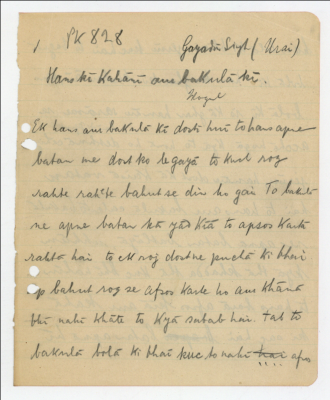 1 PK 828 Gayadīn Singh (Urai)
Hans kī Kahānī aur bakulā kī.
Ek hans aur bakulā kī dostī huī to hans apne
batan me dost ko le gayā to kuch roj
rahte rahte bahut se din ho gaīn To bakulā
ne apne batan kā yād kīā to apsos kartā
rahtā hai to ek roj dost ne puchā ki bhāi
āp bahut roj se afsos karte ho aur khānā
bhī nahi khāte to kyā sabab hai. tab to
bakulā bolā ki bhāi kuc to nahi hai afsos